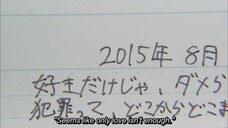 2015年 8月
好きだけじゃ、ダメら
犯罪って、どこからどこま
"Seems like only love isn't enough."